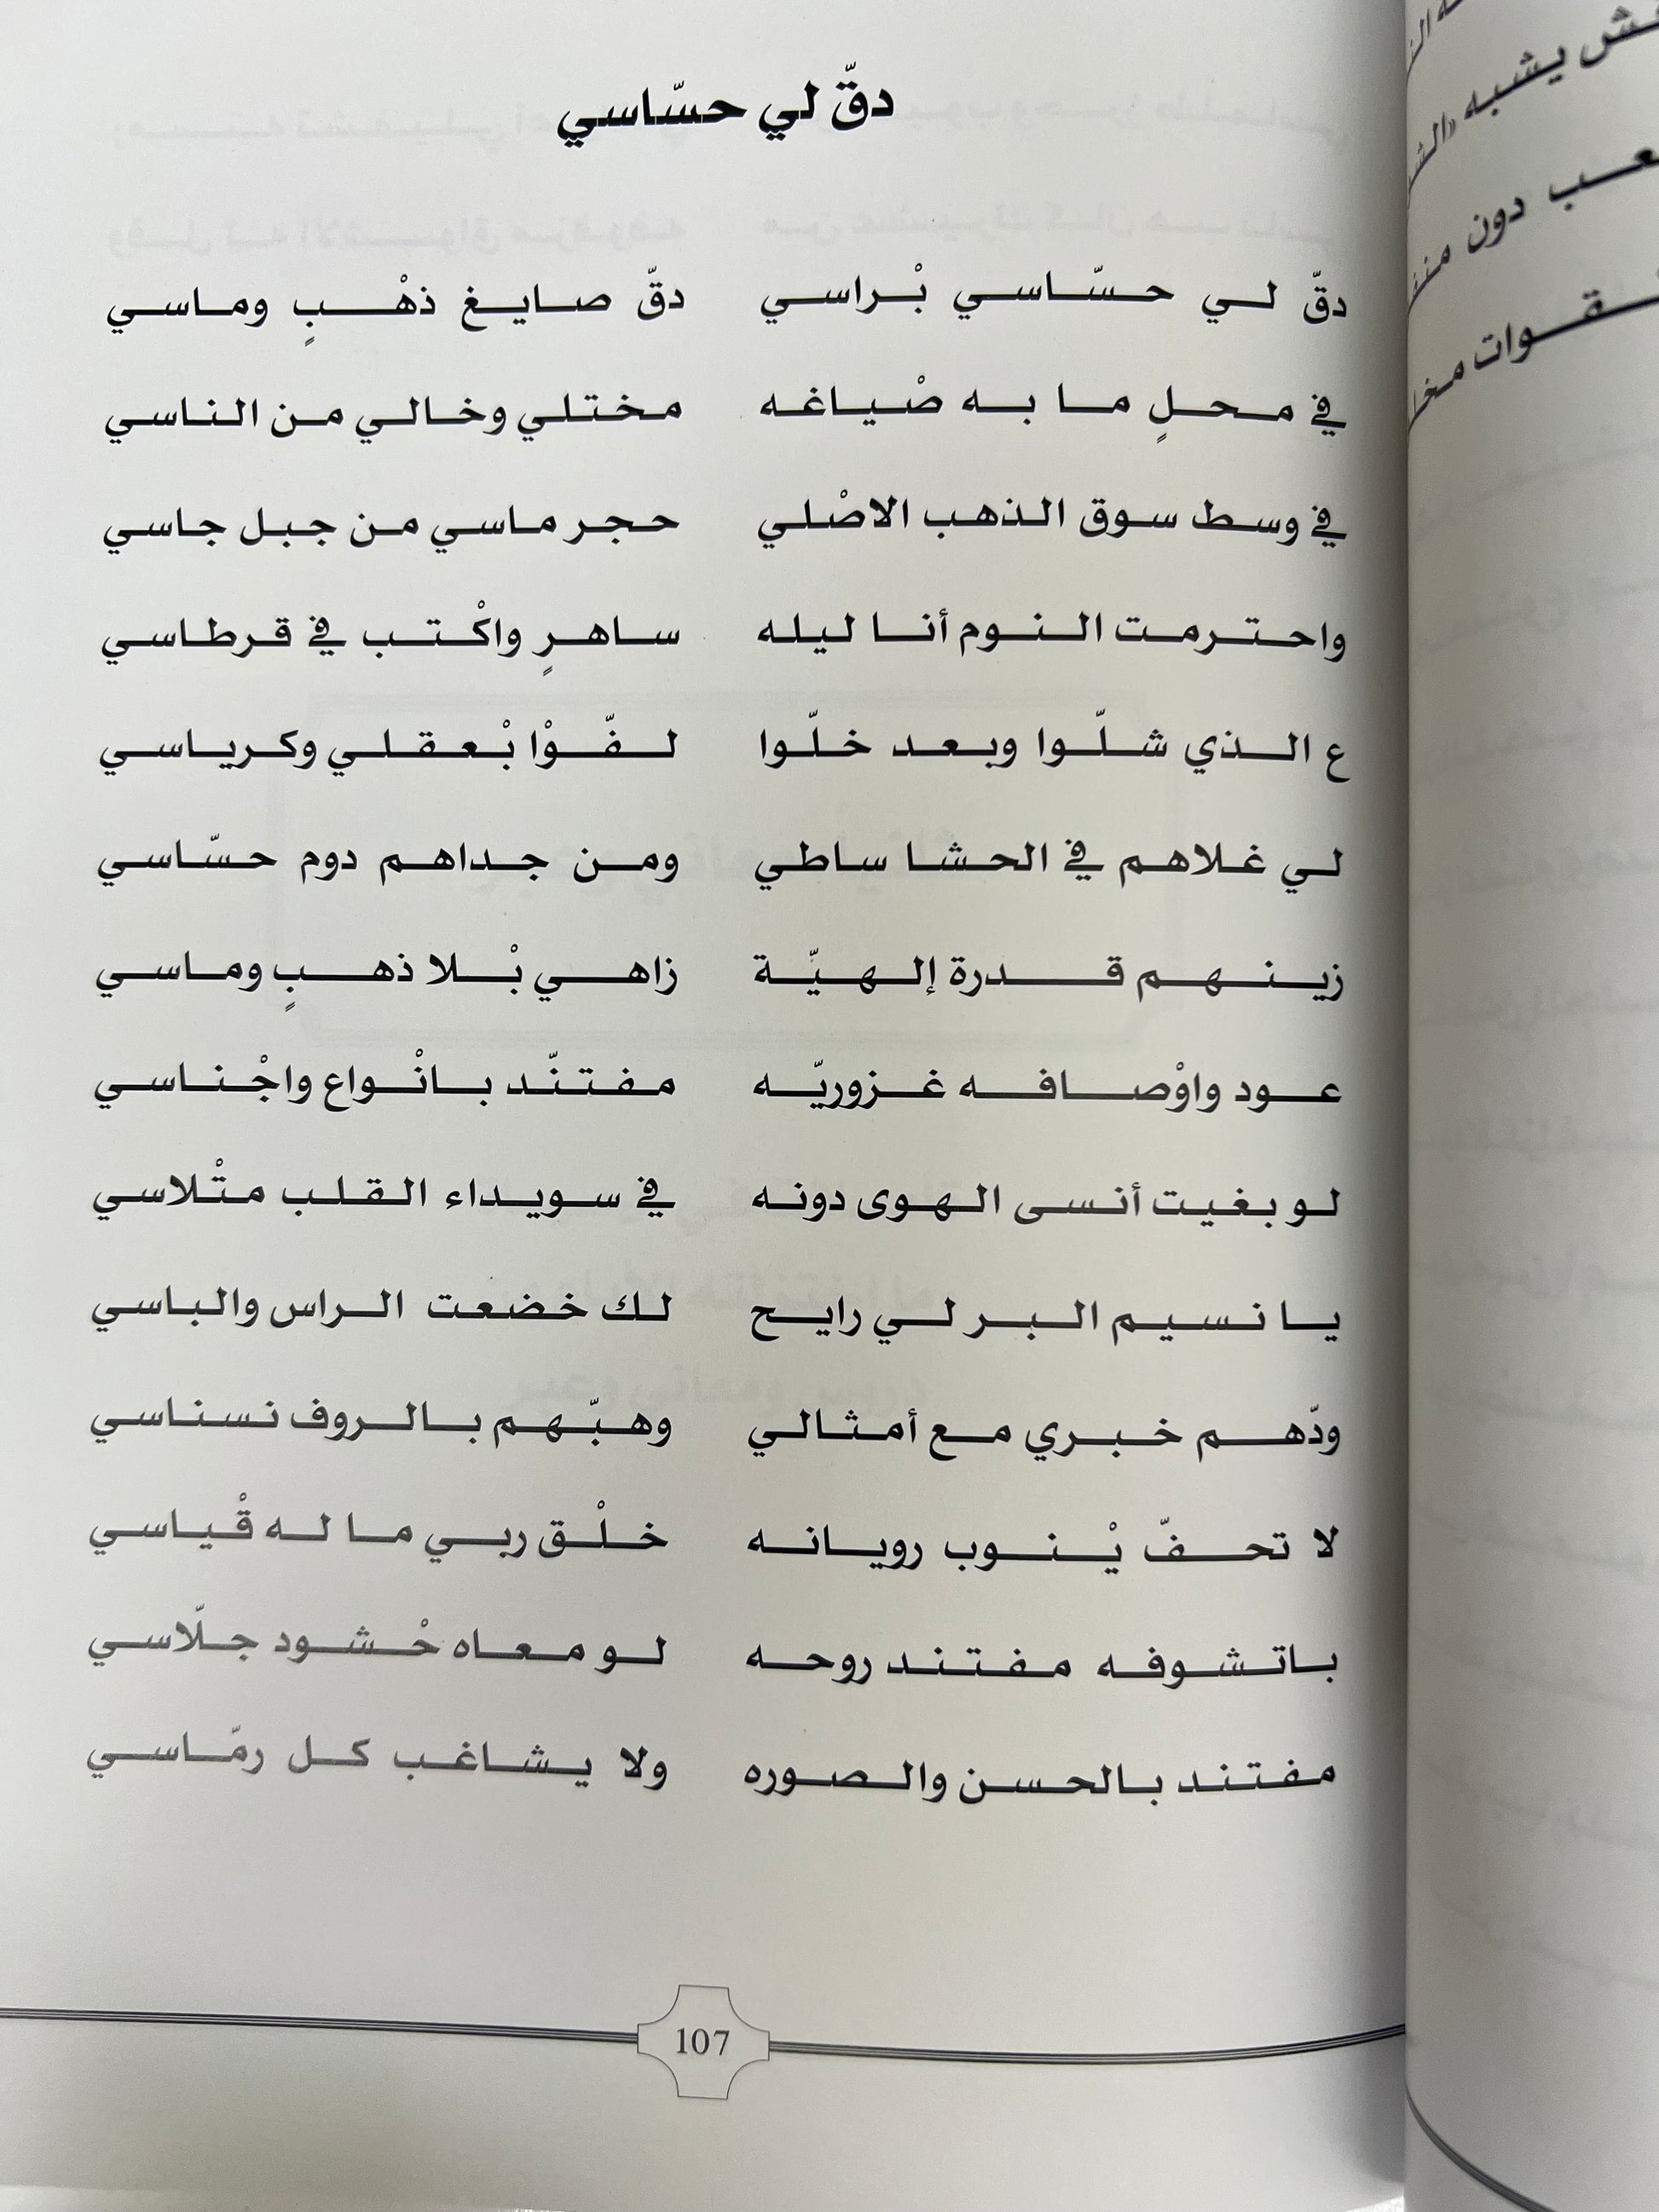 دقّ لي حسّاسي
دقّ لي حسّاسي بْراسي دقّ صايغ ذهْبٍ وماسي
في محلٍ ما به صْياغه مختلي وخالي من الناسي
في وسط سوق الذهب الاصْلي حجر ماسي من جبل جاسي
واحترمت النوم أنا ليله ساهرٍ واكْتب في قرطاسي
ع الذي شلّوا وبعد خلّوا لفّوْا بْعقلي وكرياسي
لي غلاهم في الحشا ساطي ومن جداهم دوم حسّاسي
زينهم قدرة إلهيّة زاهي بْلا ذهبٍ وماسي
عود واوْصافه غزوريّه مفتنّد بانْواع واجْناسي
لو بغيت أنسى الهوى دونه في سويداء القلب متْلاسي
يا نسيم البر لي رايح لك خضعت الراس والباسي
ودّهم خبري مع أمثالي وهبّهم بالروف نسناسي
لا تحفّ يْنوب رويانه خلْق ربي ما له قْياسي
باتشوفه مفتند روحه لو معاه حْشود جلّاسي
مفتند بالحسن والصوره ولا يشاغب كل رمّاسي
107
ـش يشبه «الش
ـعب دون منـ
ـقوات مخـ